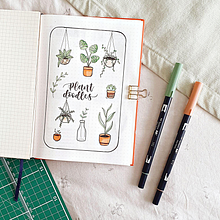 plant
doodles